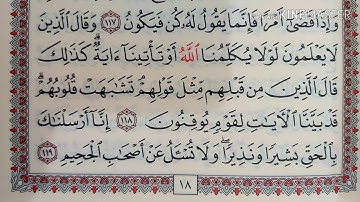 وَإِذَا قَضَىٰٓ أَمْرًا فَإِنَّمَا يَقُولُ لَهُۥ كُن فَيَكُونُ ١١٧ وَقَالَ ٱلَّذِينَ
لَا يَعْلَمُونَ لَوْلَا يُكَلِّمُنَا ٱللَّهُ أَوْ تَأْتِينَآ ءَايَةٌ ۗ كَذَٰلِكَ
قَالَ ٱلَّذِينَ مِن قَبْلِهِم مِّثْلَ قَوْلِهِمْ ۘ تَشَٰبَهَتْ قُلُوبُهُمْ ۗ
قَدْ بَيَّنَّا ٱلْءَايَٰتِ لِقَوْمٍ يُوقِنُونَ ١١٨ إِنَّآ أَرْسَلْنَٰكَ
بِٱلْحَقِّ بَشِيرًا وَنَذِيرًا ۖ وَلَا تُسْـَٔلُ عَنْ أَصْحَٰبِ ٱلْجَحِيمِ ١١٩
١٨